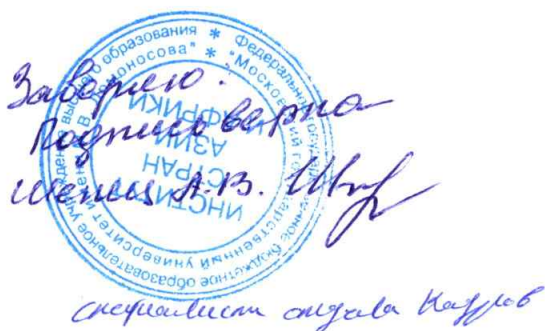 Заверяю.
Подпись верна
А.В.
специалист отдела кадров
Федеральное государственное бюджетное образовательное учреждение высшего образования *
"Московский государственный университет имени М.В. Ломоносова" *
ИНСТИТУТ
СТРАН
АЗИИ
И АФРИКИ